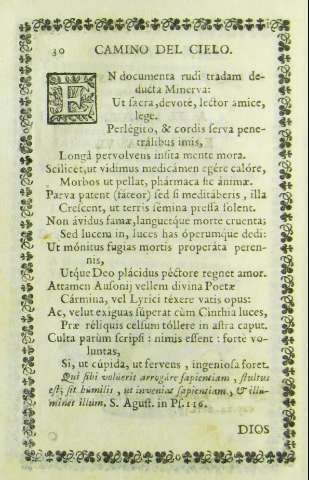 30 CAMINO DEL CIELO.
EN documenta rudi tradam de-
ducta Minerva:
Ut sacra, devotè, lector amice,
lege.
Perlégito, & cordis serva pene-
trálibus imis,
Longâ pervolvens insita mente mora.
Scilicet, ut vidimus medicámen egére calóre,
Morbos ut pellat, phármaca sic ánimæ.
Parva patent (fateor) sed si meditáberis, illa
Crescent, ut terris sémina pressa solent.
Non ávidus famæ, languetque morte cruentus;
Sed lucem in, luces has óperumque dedi:
Ut mónitus fugias mortis properáta peren-
nis,
Utque Deo plácidus péctore regnet amor.
Attamen Ausonij vellem divina Poetæ
Cármina, vel Lyrici téxere vatis opus:
Ac, velut exiguas súperat cùm Cinthia luces,
Præ réliquis celsum tóllere in astra caput.
Culta parùm scripsi: nimis essent: forte vo-
luntas,
Si, ut cúpida, ut fervens, ingeniosa foret.
Qui sibi voluerit arrogáre sapientiam, stultus
est; sit humilis, ut inveniat sapientiam, & illu-
minet illum. S. Agust. in Ps. 130.
DIOS